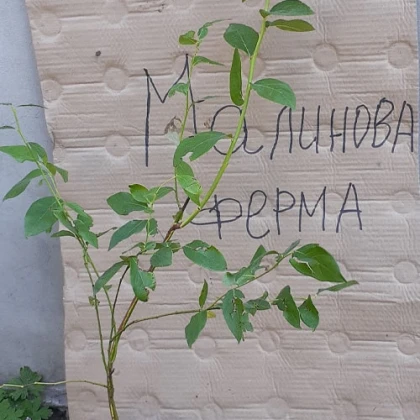 Малинова
ферма